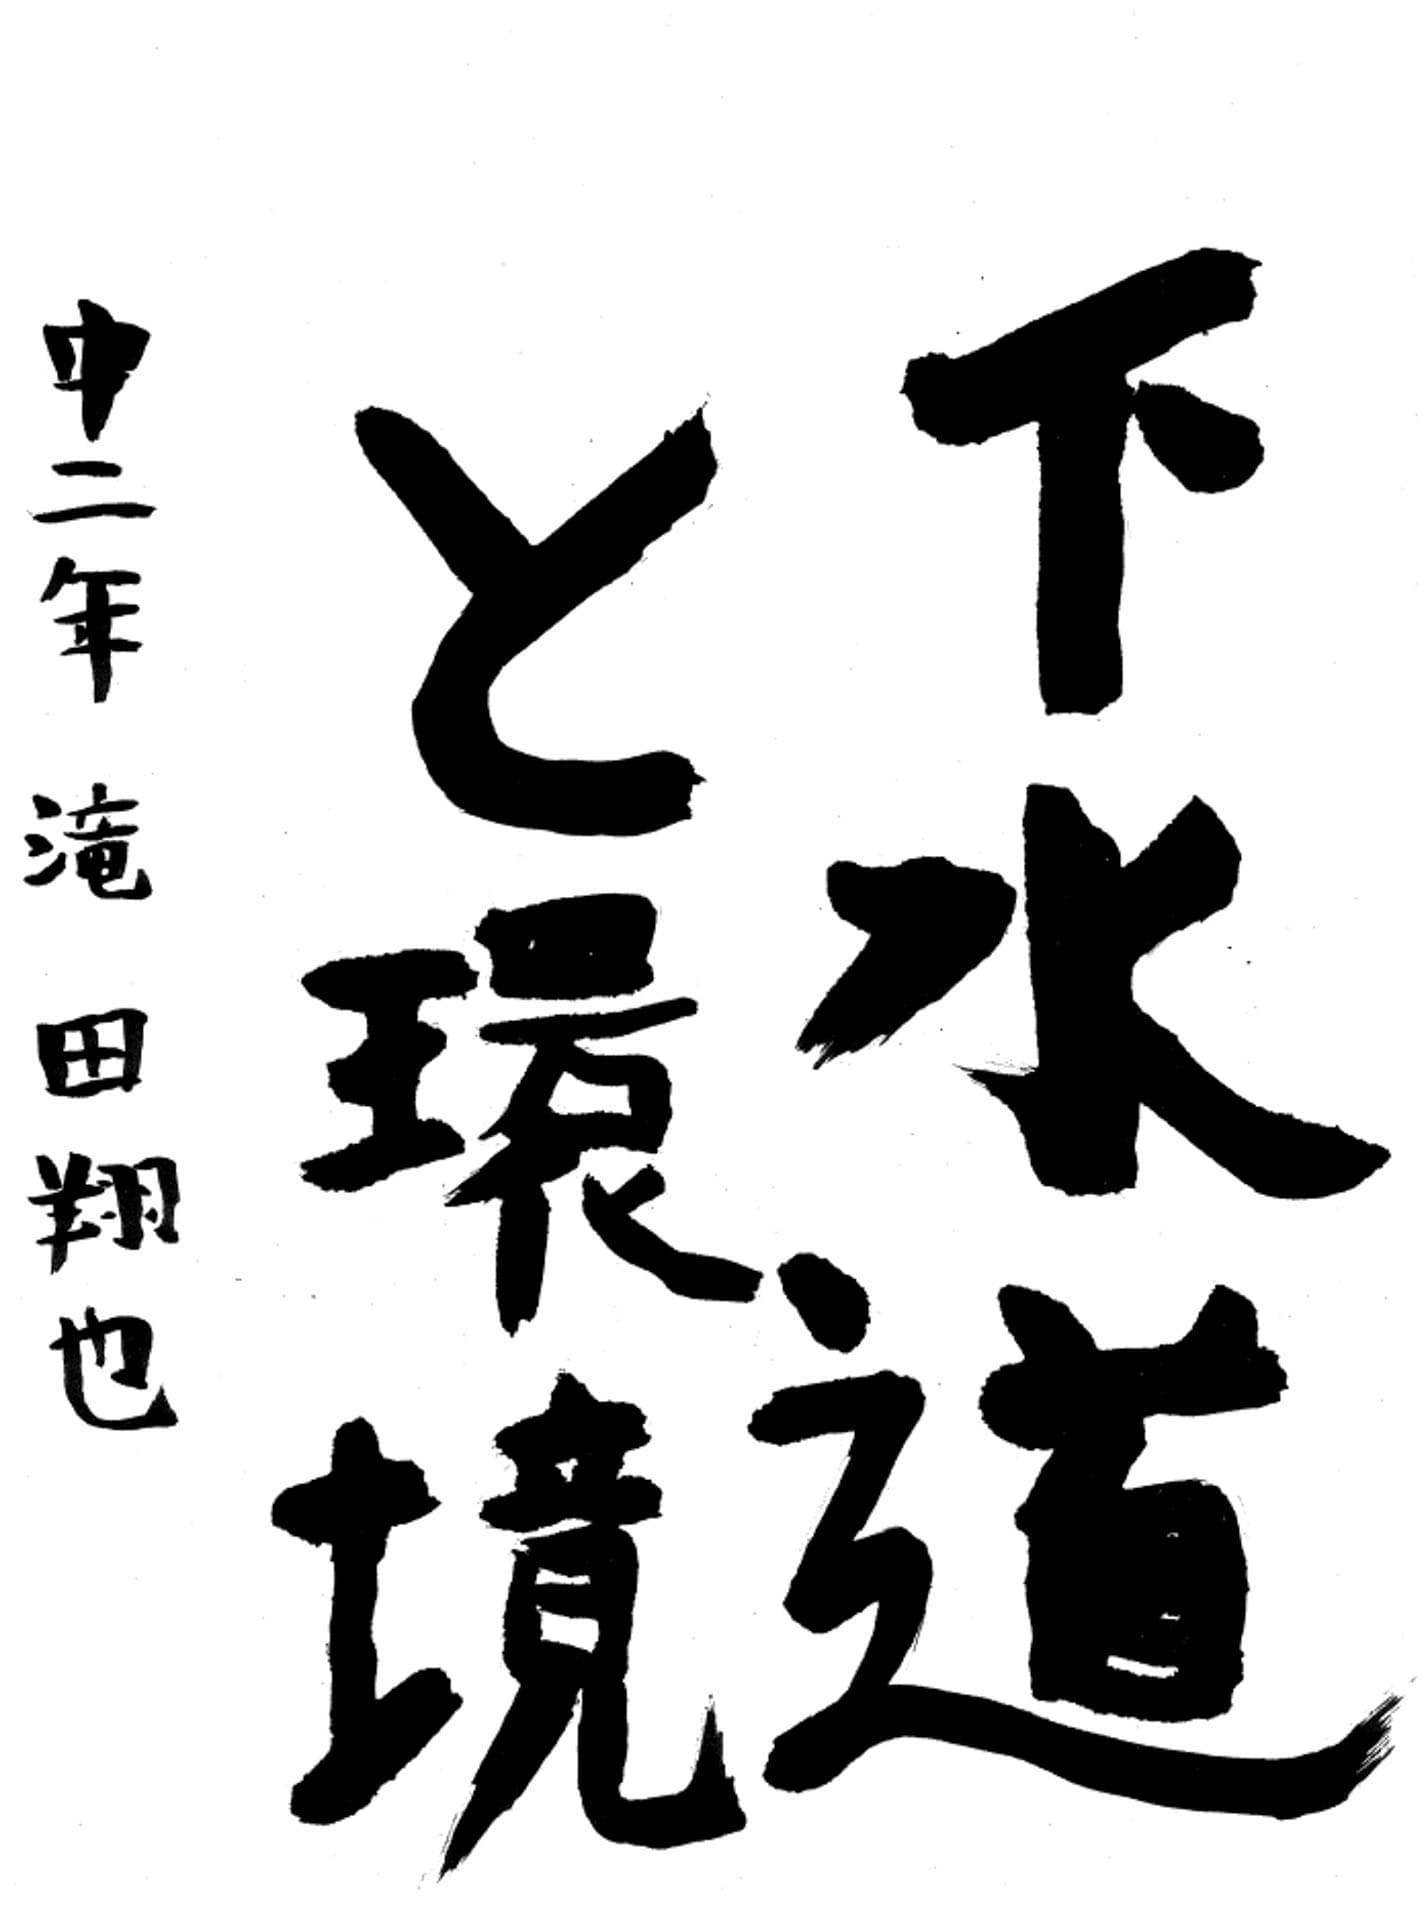 下水道
と環境
中二年 滝田翔也